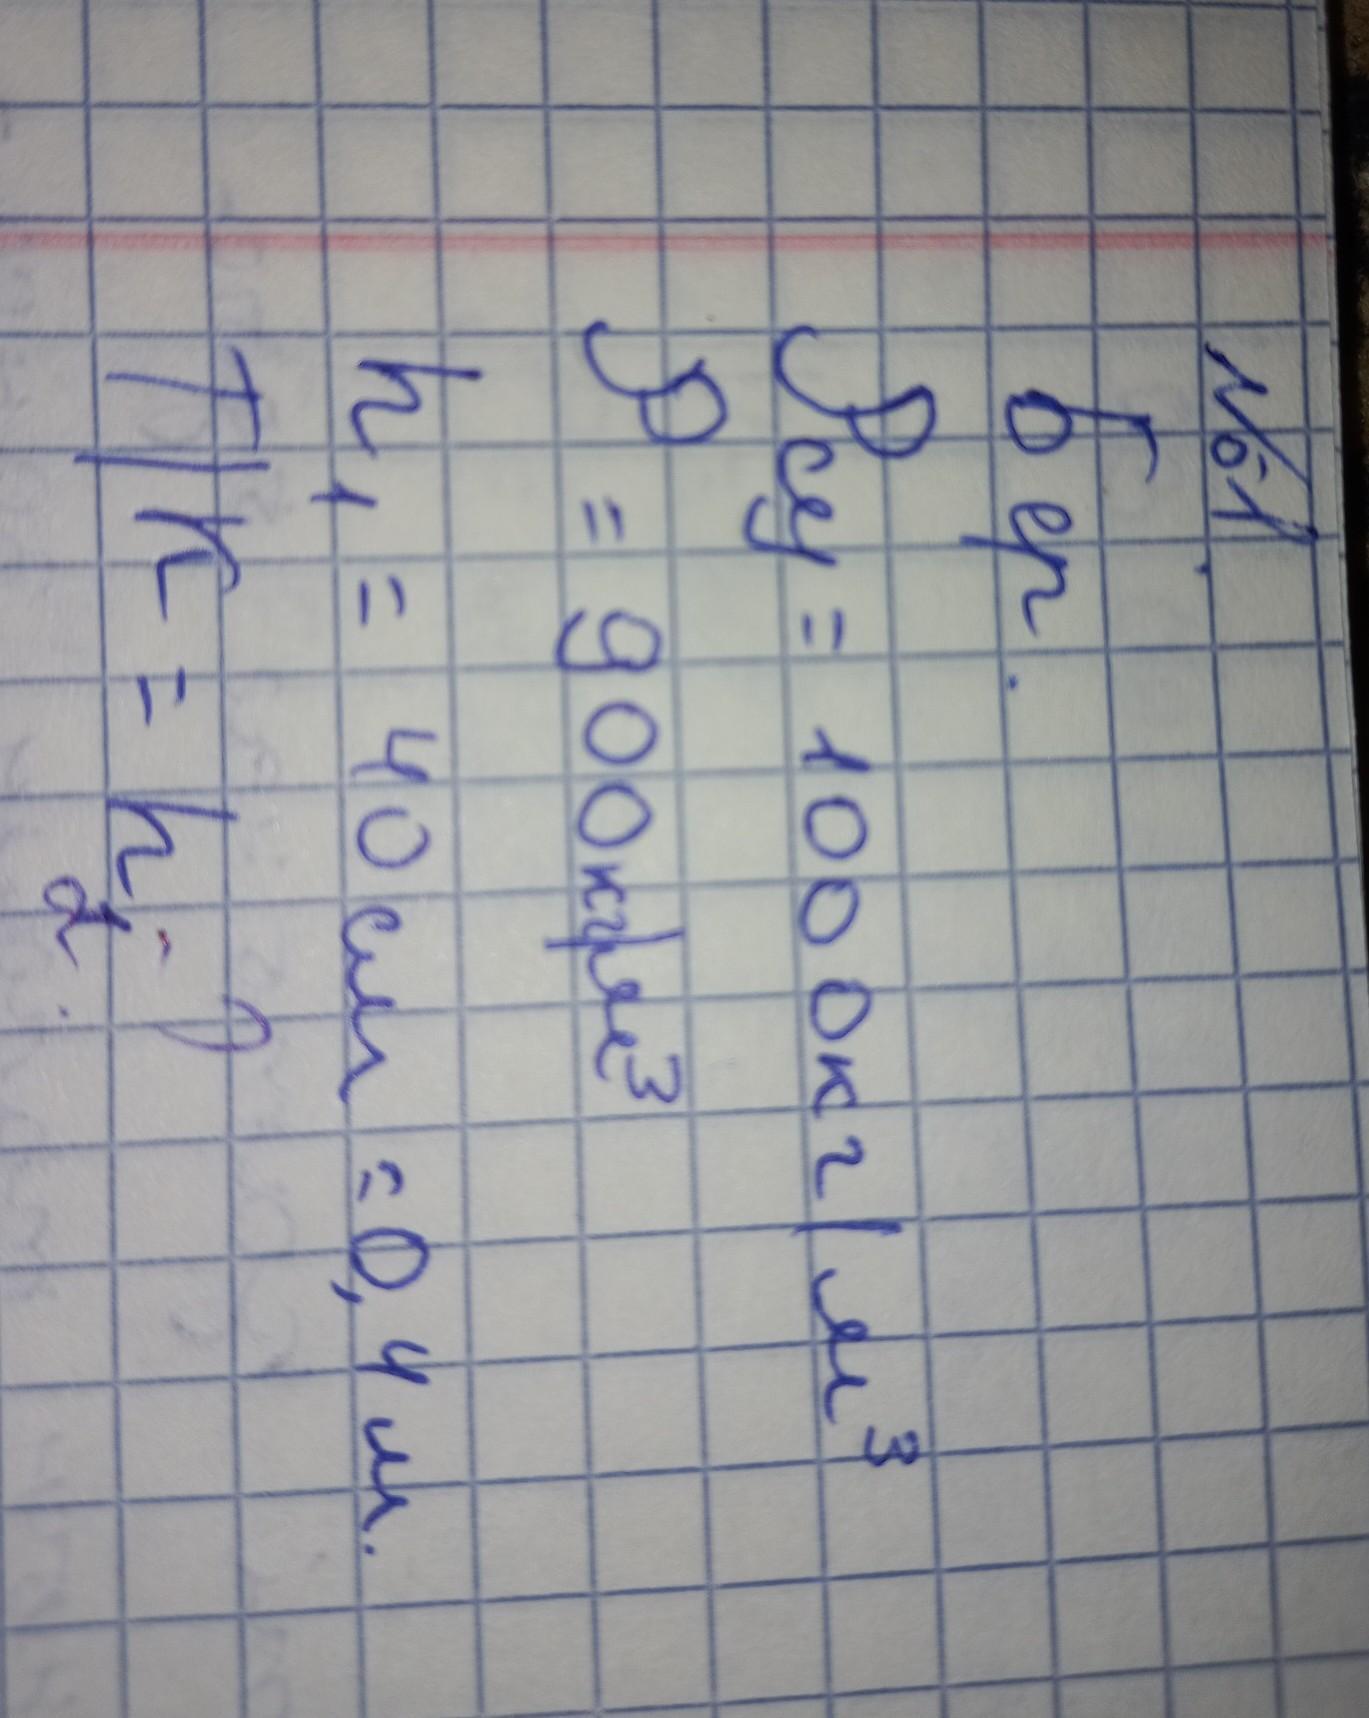 №1.
бер.
ρсу = 1000кг/м³
ρ = 900кг/м³
h₁ = 40см = 0,4м.
Т/к = h₂ - ?